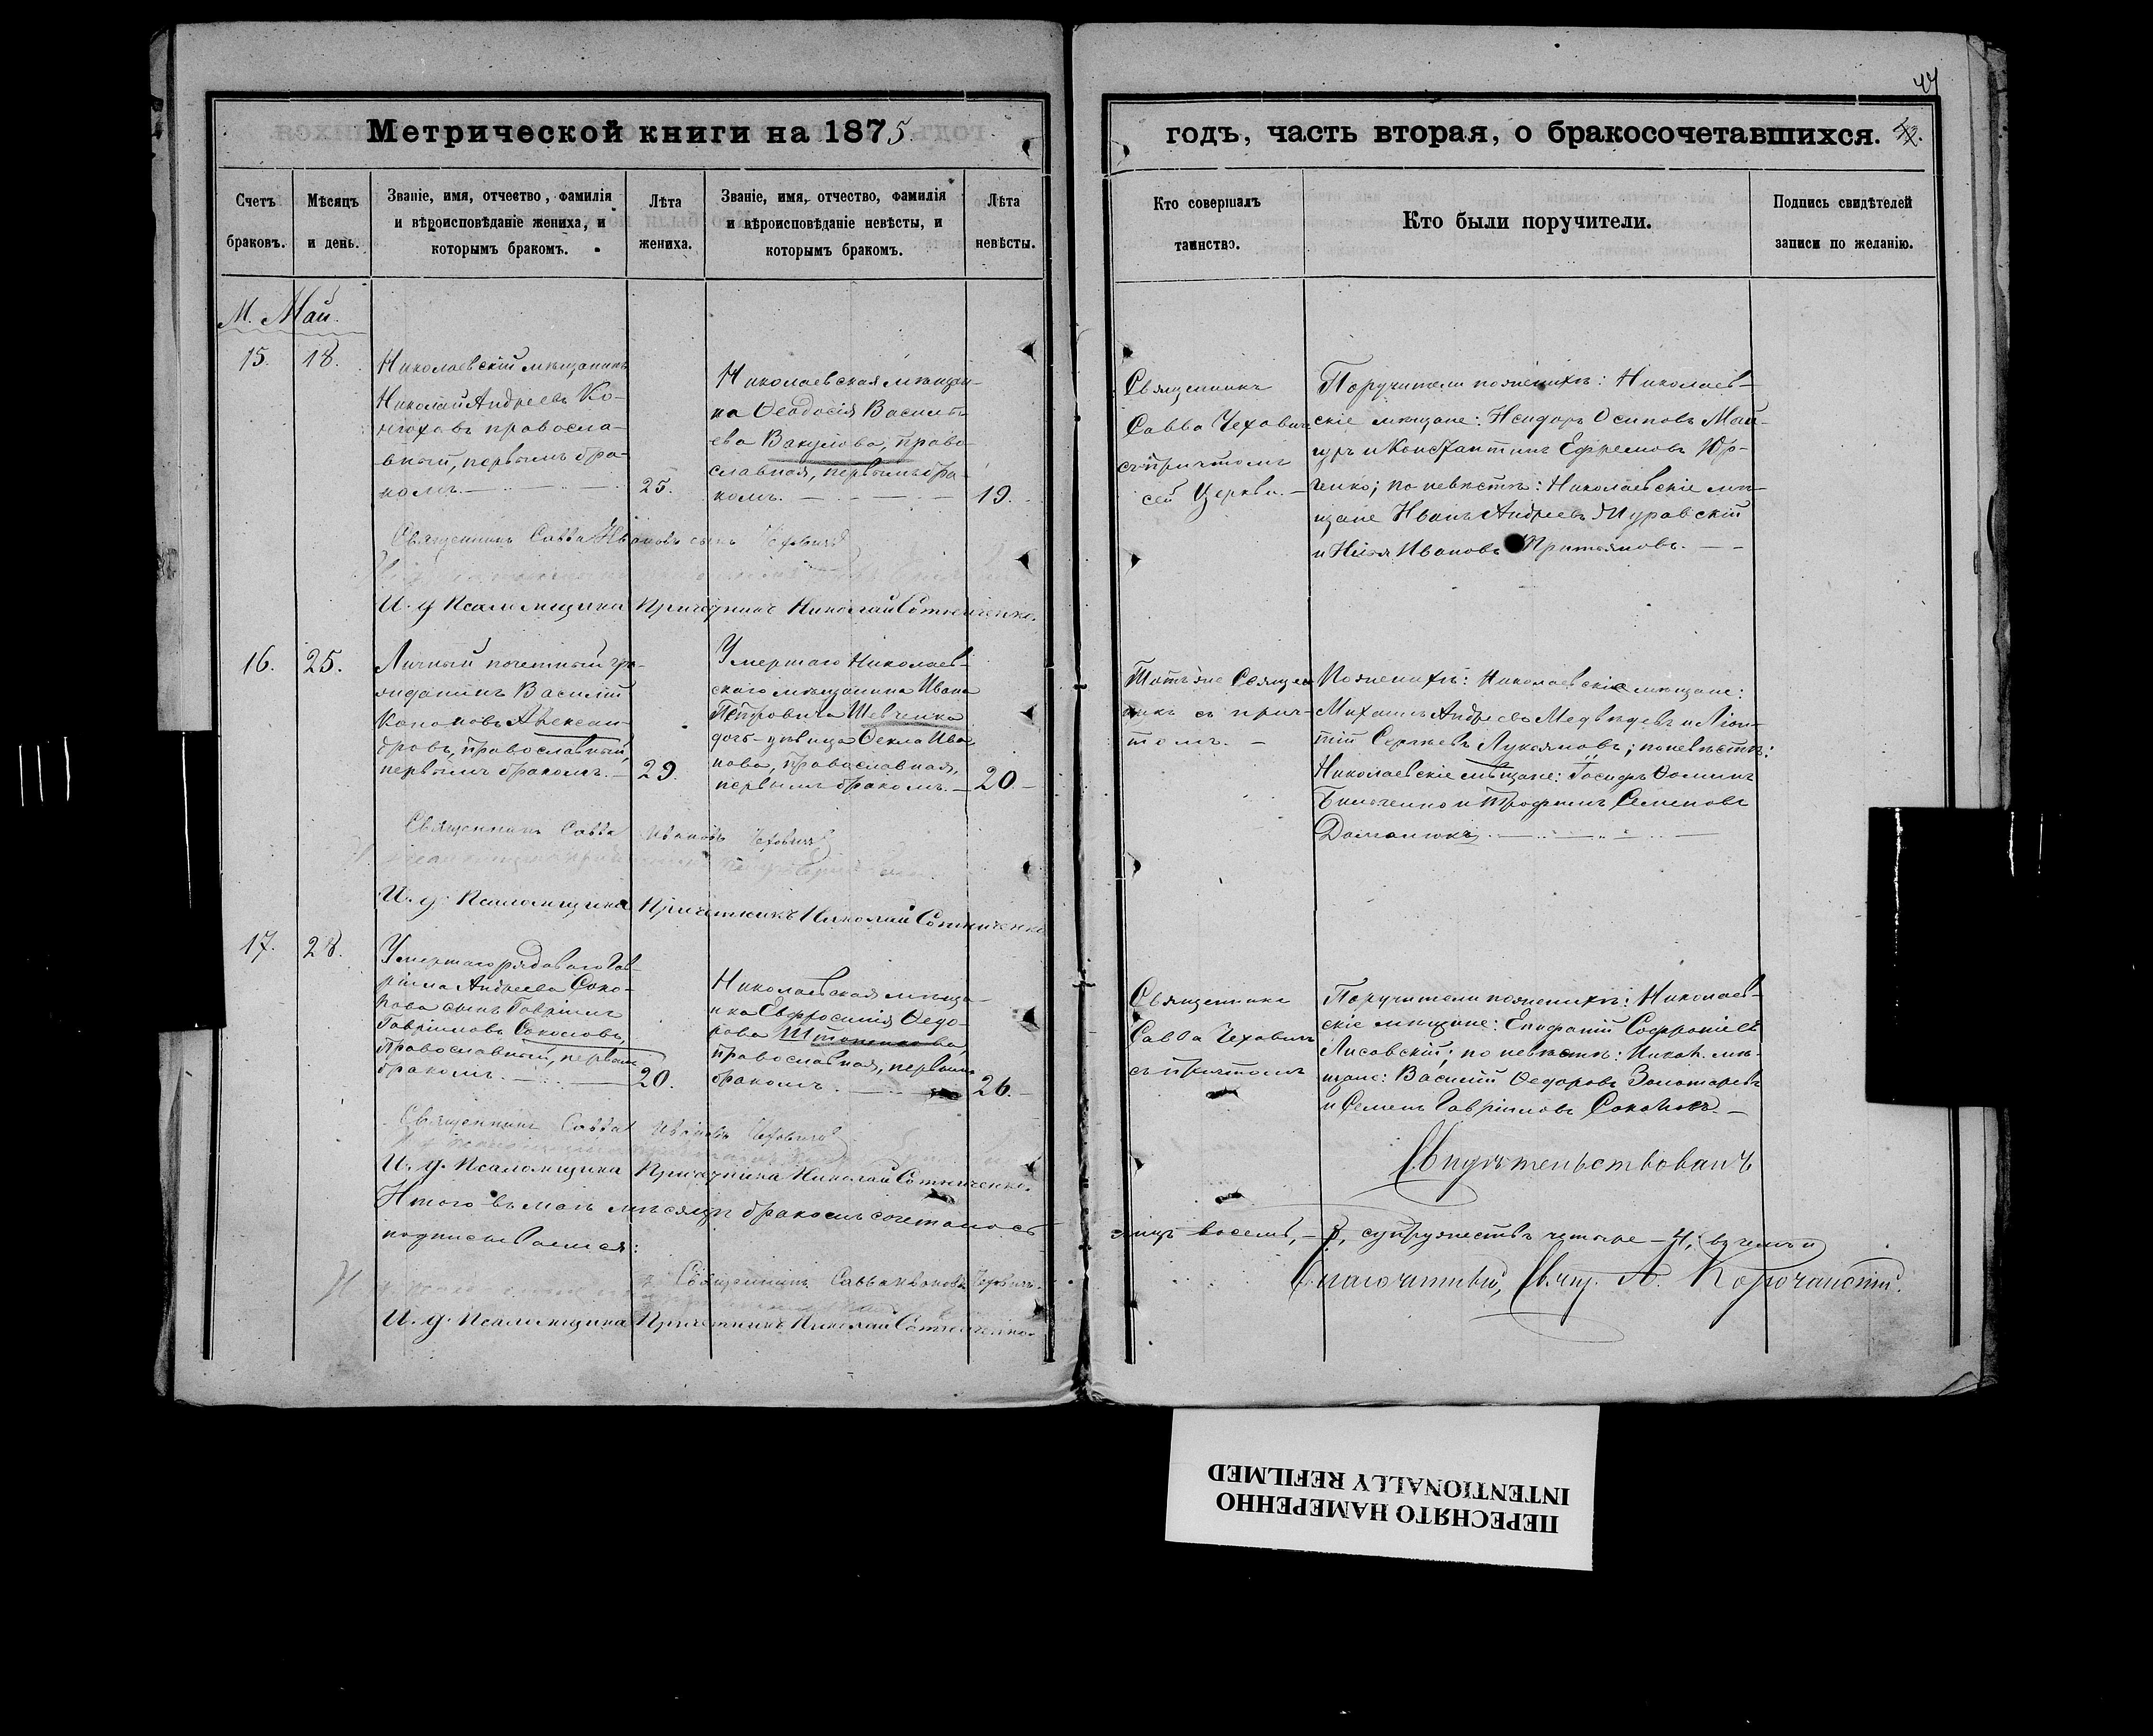 44
Метрической книги на 1875
годъ, часть вторая, о бракосочетавшихся.
Счетъ браковъ.
Мѣсяцъ и день.
Званіе, имя, отчество, фамилія
и вѣроисповѣданіе жениха, и
которымъ бракомъ.
Лѣта жениха.
Званіе, имя, отчество, фамилія
и вѣроисповѣданіе невѣсты, и
которымъ бракомъ.
Лѣта невѣсты.
Кто совершалъ
таинство.
Кто были поручители.
Подпись свидѣтелей
записи по желанію.
М. Май.
15.
18.
Николаевскій мѣщанинъ
Николай Андреевъ Ко-
нюховъ православ-
вный, первымъ бра-
комъ.
25.
Николаевская мѣщан-
ка Ѳеодосія Василь-
ева Вакулова, право-
славная, первымъ бра-
комъ.
19.
Священникъ
Савва Чеховичъ
съ причтомъ
сей Церкви.
Поручители по женихѣ: Николаев-
скіе мѣщане: Исидоръ Осиповъ
и Константинъ Ефремовъ Юр-
ченко; по невѣстѣ: Николаевскіе мѣ-
щане Иванъ Андреевъ Муровскій
и Ивановъ
Священникъ Савва Ивановъ сынъ Чеховичъ
И. д. Псаломщика Причетникъ Николай Сотниченко.
16.
25.
Личный почетный гра-
жданинъ Василій
Кононовъ Алексан-
дровъ, православный,
первымъ бракомъ.
29.
Умершаго Николаев-
скаго мѣщанина Ивана
Петровича Шевченка
дочь-дѣвица Ѳекла Ива-
нова, православная,
первымъ бракомъ.
20.
Тотъ же Священ-
никъ съ прич-
томъ.
По женихѣ: Николаевскіе мѣщане:
Михаилъ Андреевъ Медвѣдевъ и
Сергѣевъ Лукьяновъ; по невѣстѣ:
Николаевскіе мѣщане: Іосифъ Ѳоминъ
и Трофимъ Семеновъ
Доманюкъ.
Священникъ Савва Ивановъ Чеховичъ
И. д. Псаломщика Причетникъ Николай Сотниченко
17.
28.
Умершаго рядоваго Гав-
ріила Андреева Соко-
лова сынъ Гавріилъ
Гавріиловъ Соколовъ,
православный, первымъ
бракомъ.
20.
Николаевская мѣща-
нка Евфросинія Ѳедо-
рова
православная, первымъ
бракомъ.
26.
Священникъ
Савва Чеховичъ
съ причтомъ
Поручители по женихѣ: Николаев-
скіе мѣщане: Епифаній Софроніевъ
Лисовскій; по невѣстѣ: Никол. мѣ-
щане: Василій Ѳедоровъ Золотаревъ
и Семенъ Гавріиловъ Соколовъ.
Священникъ Савва Ивановъ Чеховичъ
И. д. Псаломщика Причетникъ Николай Сотниченко.
Свидѣтельствовалъ
Итого въ маѣ мѣсяцѣ бракомъ сочеталось
лицъ восемь, - 8, супружествъ четыре - 4, въ чемъ и
подписываемся:
Благочинный, Свящ. А. Корочанскій.
Священникъ Савва Ивановъ Чеховичъ.
И. д. Псаломщика Причетникъ Николай Сотниченко.
ПЕРЕСНЯТО НАМЕРЕННО
INTENTIONALLY REFILMED